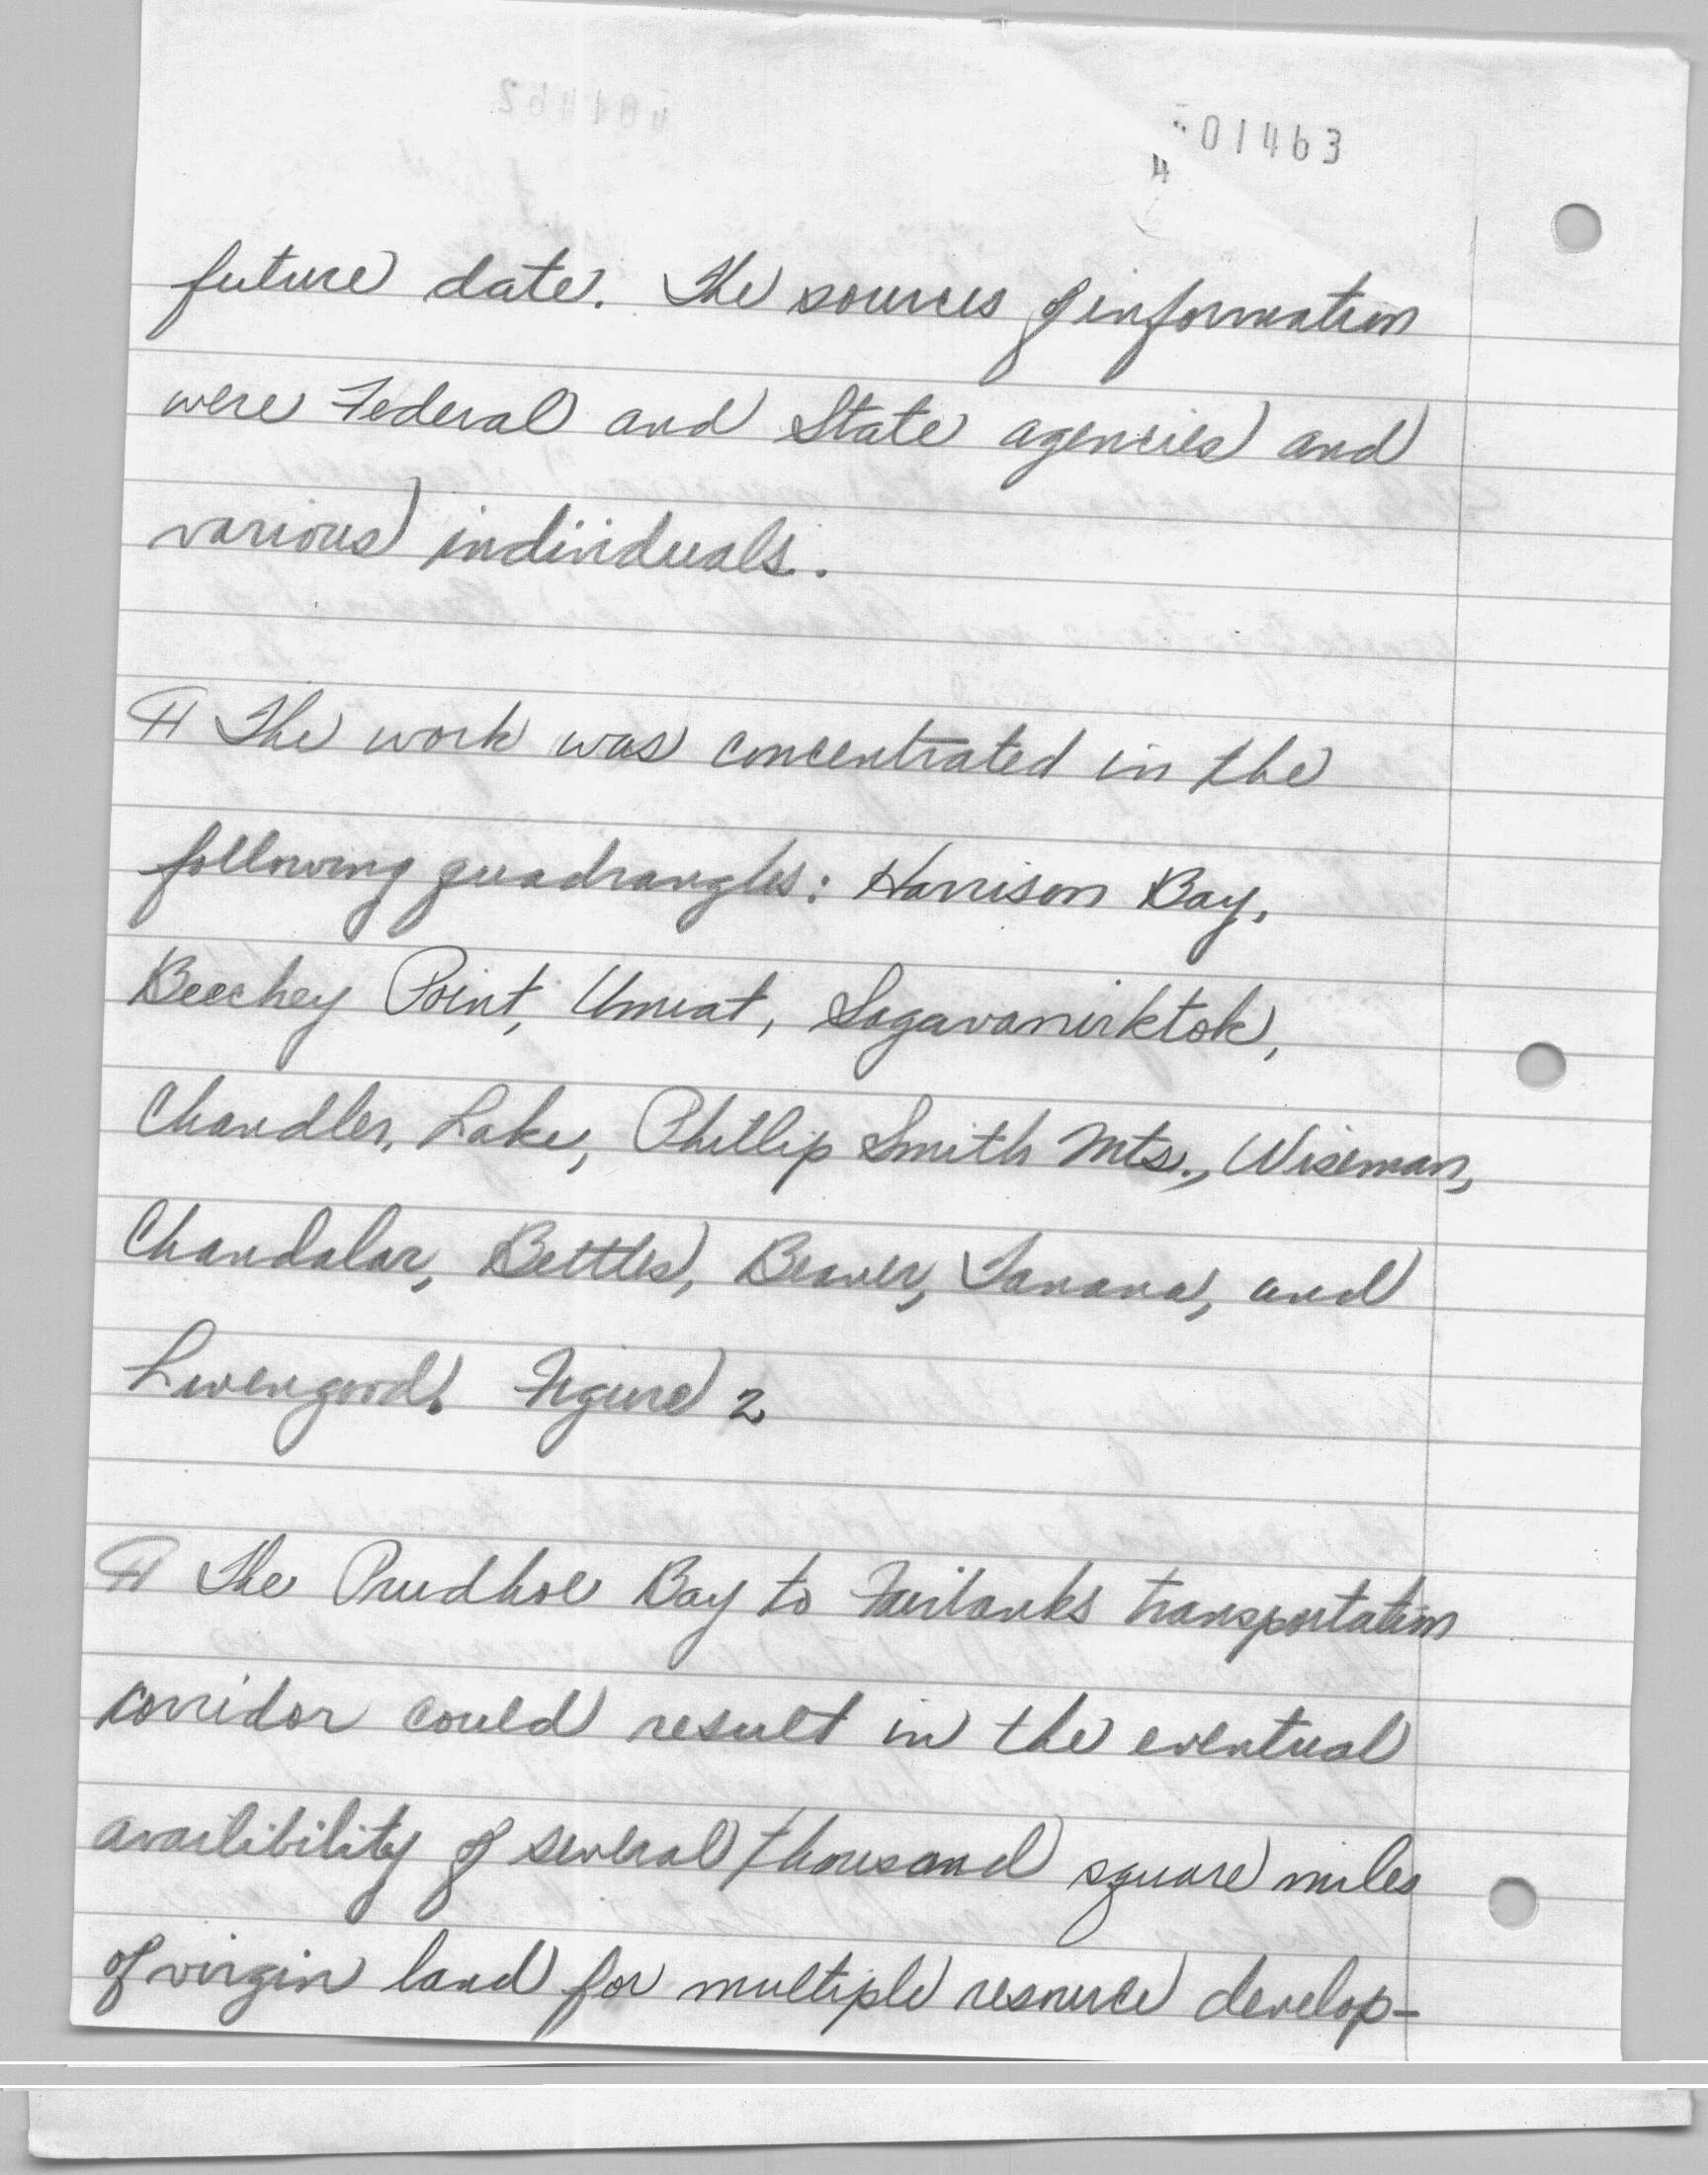 01463
4
future date. The sources of information
were Federal and State agencies and
various individuals.
¶ The work was concentrated in the
following quadrangles: Harrison Bay,
Beechey Point, Umiat, Sagavanirktok,
Chandler, Lake, Phillip Smith Mts., Wiseman,
Chandalar, Bettles, Beaver, Tanana, and
Livengood. Figure 2
¶ The Prudhoe Bay to Fairbanks transportation
corridor could result in the eventual
availibility of several thousand square miles
of virgin land for multiple resource develop-